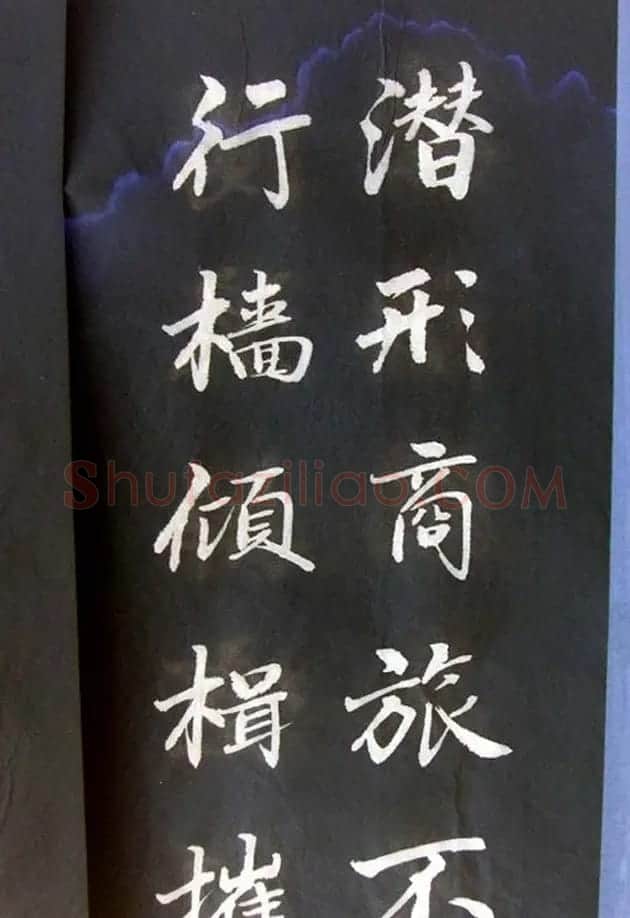 潜形商旅不
行檣傾楫摧
Shufaziliao.COM